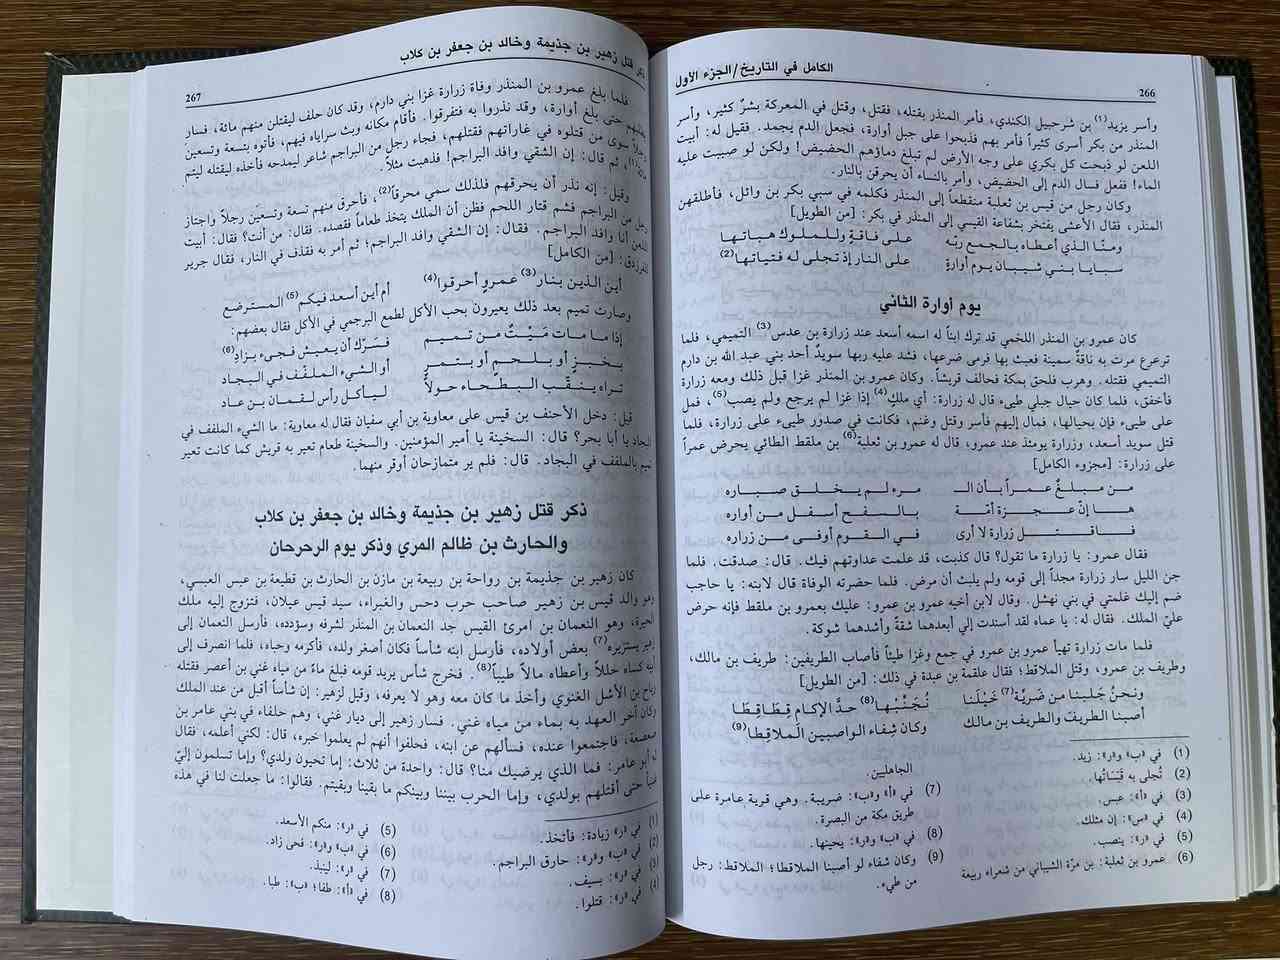 266
الكامل في التاريخ/الجزء الأول
وأسر يزيد(1) بن شرحبيل الكندي، فأمر المنذر بقتله، فقتل، وقتل في المعركة بشرٌ كثير، وأسر
المنذر من بكر أسرى كثيراً فأمر بهم فذبحوا على جبل أوارة، فجعل الدم يجمد. فقيل له: أبيت
اللعن لو ذبحت كل بكري على وجه الأرض لم تبلغ دماؤهم الحضيض! ولكن لو صببت عليه
الماء! ففعل فسال الدم إلى الحضيض، وأمر بالنساء أن يحرقن بالنار.
وكان رجل من قيس بن ثعلبة منقطعاً إلى المنذر فكلمه في سبي بكر بن وائل، فأطلقهن
المنذر، فقال الأعشى يفتخر بشفاعة القيسي إلى المنذر في بكر: [من الطويل]
ومنّا الذي أعطاه بالجمع ربّه على فاقةٍ وللملوك هباتها
سبايا بني شيبان يوم أوارةٍ على النار إذ تجلى له فتياتها(2)
يوم أوارة الثاني
كان عمرو بن المنذر اللخمي قد ترك ابناً له اسمه أسعد عند زرارة بن عدس(3) التميمي، فلما
ترعرع مرت به ناقةٌ سمينة فعبث بها فرمى ضرعها، فشد عليه ربها سويدٌ أحد بني عبد الله بن دارم
التميمي فقتله. وهرب فلحق بمكة فحالف قريشاً. وكان عمرو بن المنذر غزا قبل ذلك ومعه زرارة
فأخفق، فلما كان حيال جبلي طيىء قال له زرارة: أي ملكٍ(4) إذا غزا لم يرجع ولم يصب(5)، فمل
على طيىء فإن بحيالها، فمال إليهم فأسر وقتل وغنم، فكانت في صدور طيىء على زرارة، فلما
قتل سويد أسعد، وزرارة يومئذ عند عمرو، قال له عمرو بن ثعلبة(6) بن ملقط الطائي يحرض عمراً
على زرارة: [مجزوء الكامل]
من مبلغٌ عمراً بأن الـ مرء لم يخلق صباره
ها إنّ عجزة أمّه بالسفح أسفل من أواره
فاقتل زرارة لا أرى في القوم أوفى من زراره
فقال عمرو: يا زرارة ما تقول؟ قال كذبت، قد علمت عداوتهم فيك. قال: صدقت. فلما
جن الليل سار زرارة مجداً إلى قومه ولم يلبث أن مرض. فلما حضرته الوفاة قال لابنه: يا حاجب
ضم إليك غلمتي في بني نهشل. وقال لابن أخيه عمرو بن عمرو: عليك بعمرو بن ملقط فإنه حرض
عليّ الملك. فقال له: يا عماه لقد أسندت إلي أبعدهما شقةً وأشدهما شوكة.
فلما مات زرارة تهيأ عمرو بن عمرو في جمع وغزا طيئاً فأصاب الطريفين: طريف بن مالك،
وطريف بن عمرو، وقتل الملاقط؛ فقال علقمة بن عبدة في ذلك: [من الطويل]
ونحنُ جَلبنا من ضَريّة(7) خَيْلَنا نُجَنِّبُها(8) حدَّ الإكام قِطاقِطَا
أصبنا الطريفَ والطريف بن مالك وكان شفاء الواصبين المَلاقِطا(9)
(1) في «ب» و«ر»: زيد.
(2) تُجلى به قَيْنَاتُها.
(3) في «أ»: عبس.
(4) في «س»: إن مثلك.
(5) في «ب» و«ر»: ينصب.
(6) عمرو بن ثعلبة: بن مرّة الشيباني من شعراء ربيعة
الجاهليين.
(7) في «أ» و«ب»: ضريبة. وهي قرية عامرة على
طريق مكة من البصرة.
(8) في «ب» و«ر»: يحينها.
(9) وكان شفاء لو أصبنا الملاقطا؛ الملاقط: رجل
من طيء.
ذكر قتل زهير بن جذيمة وخالد بن جعفر بن كلاب
267
فلما بلغ عمرو بن المنذر وفاة زرارة غزا بني دارم، وقد كان حلف ليقتلن منهم مائة، فسار
حتى بلغ أوارة، وقد نذروا به فتفرقوا. فأقام مكانه وبث سراياه فيهم، فأتوه بتسعة وتسعين
رجلاً سوى من قتلوه في غاراتهم فقتلهم، فجاء رجل من البراجم شاعر ليمدحه فأخذه ليقتله ليتم
مائة(1)، ثم قال: إن الشقي وافد البراجم! فذهبت مثلاً.
وقيل: إنه نذر أن يحرقهم فلذلك سمي محرقاً(2)، فأحرق منهم تسعة وتسعين رجلاً واجتاز
رجل من البراجم فشم قتار اللحم فظن أن الملك يتخذ طعاماً فقصده. فقال: من أنت؟ فقال: أبيت
اللعن أنا وافد البراجم. فقال: إن الشقي وافد البراجم؛ ثم أمر به فقذف في النار، فقال جرير
للفرزدق: [من الكامل]
أين الذين بنار(3) عمرو أحرقوا(4) أم أين أسعد فيكم(5) المسترضع
وصارت تميم بعد ذلك يعيرون بحب الأكل لطمع البرجمي في الأكل فقال بعضهم:
إذا ما مات مَيْتٌ من تميم فسَرّك أن يعيش فجىء بزادِ(6)
بخبزٍ أو بلحمٍ أو بتمرٍ أو الشيء الملفّف في البجاد
تراه ينقّب البطحاء حولاً ليأكل رأس لقمان بن عاد
قيل: دخل الأحنف بن قيس على معاوية بن أبي سفيان فقال له معاوية: ما الشيء الملفف في
البجاد يا أبا بحر؟ قال: السخينة يا أمير المؤمنين. والسخينة طعام تعير به قريش كما كانت تعير
تميم بالملفف في البجاد. قال: فلم ير متمازحان أوقر منهما.
ذكر قتل زهير بن جذيمة وخالد بن جعفر بن كلاب
والحارث بن ظالم المري وذكر يوم الرحرحان
كان زهير بن جذيمة بن رواحة بن ربيعة بن مازن بن الحارث بن قطيعة بن عبس العبسي،
وهو والد قيس بن زهير صاحب حرب دحس والغبراء، سيد قيس عيلان، فتزوج إليه ملك
الحيرة، وهو النعمان بن امرئ القيس جد النعمان بن المنذر لشرفه وسؤدده، فأرسل النعمان إلى
زهير يستزيره(7) بعض أولاده، فأرسل ابنه شأساً فكان أصغر ولده، فأكرمه وحباه، فلما انصرف إلى
أبيه كساه حللاً وأعطاه مالاً طيباً(8). فخرج شأس يريد قومه فبلغ ماءً من مياه غني بن أعصر فقتله
رباح بن الأشل الغنوي وأخذ ما كان معه وهو لا يعرفه، وقيل لزهير: إن شأساً أقبل من عند الملك
وكان آخر العهد به بماء من مياه غني. فسار زهير إلى ديار غني، وهم حلفاء في بني عامر بن
صعصعة، فاجتمعوا عنده، فسألهم عن ابنه، فحلفوا أنهم لم يعلموا خبره، قال: لكني أعلمه، فقال
له أبو عامر: فما الذي يرضيك منا؟ قال: واحدة من ثلاث: إما تحيون ولدي؟ وإما تسلمون إليّ
غنياً حتى أقتلهم بولدي، وإما الحرب بيننا وبينكم ما بقينا وبقيتم. فقالوا: ما جعلت لنا في هذه
(1) في «ر» زيادة: فأتخذ.
(2) في «ب» و«ر»: حارق البراجم.
(3) في «ر»: بسيف.
(4) في «ر»: قتلوا.
(5) في «ر»: منكم الأسعد.
(6) في «ب» و«ر»: فحى زاد.
(7) في «ر»: لينبذ.
(8) في «أ»: طفا؛ «ب»: طبا.